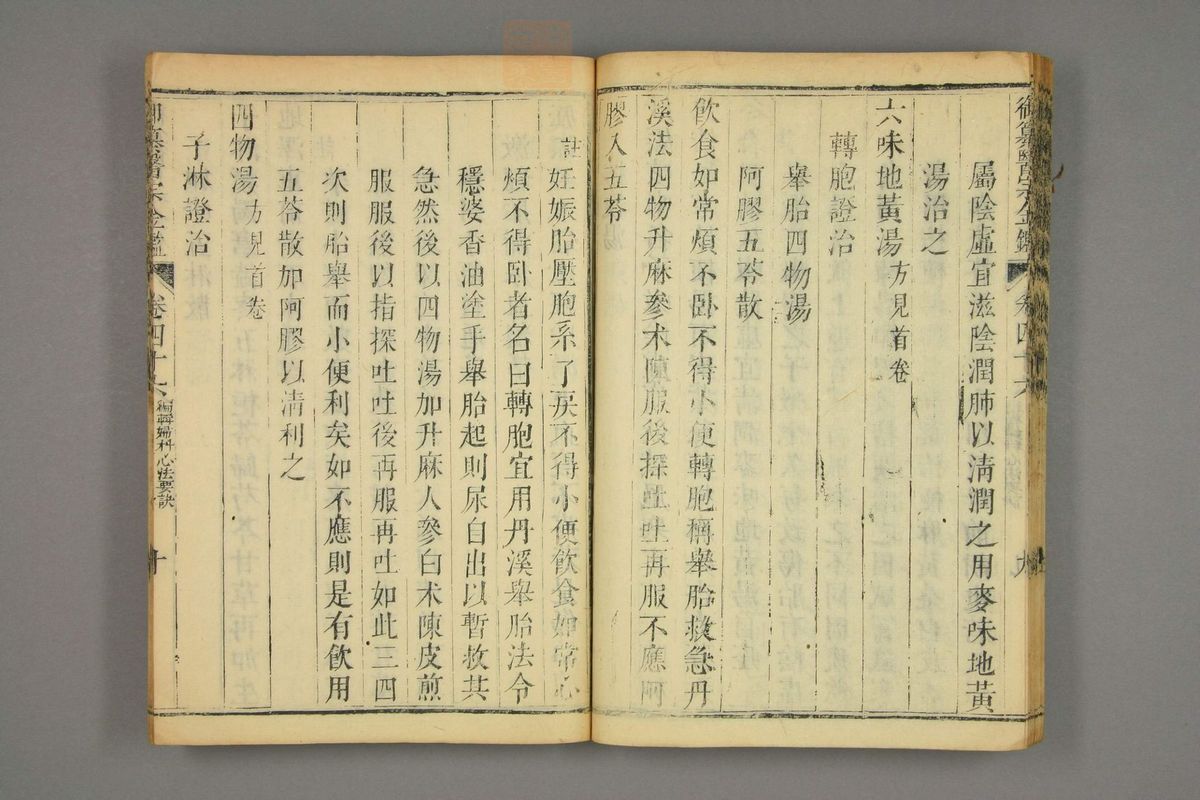 屬陰虛宜滋陰潤肺以清潤之用麥味地黃
湯治之
六味地黃湯方見首卷
轉胞證治
舉胎四物湯
阿膠五苓散
飲食如常煩不卧不得小便轉胞稱舉胎救急丹
溪法四物升麻參术陳服後探吐吐再服不應阿
膠入五苓
註妊娠胎壓胞系了戾不得小便飲食如常心
煩不得卧者名曰轉胞宜用丹溪舉胎法令
穩婆香油塗手舉胎起則尿自出以暫救其
急然後以四物湯加升麻人參白术陳皮煎
服服後以指探吐吐後再服再吐如此三四
次則胎舉而小便利矣如不應則是有飲用
五苓散加阿膠以清利之
四物湯方見首卷
子淋證治
御纂醫宗金鑑 卷四十六 編輯婦科心法要訣 十